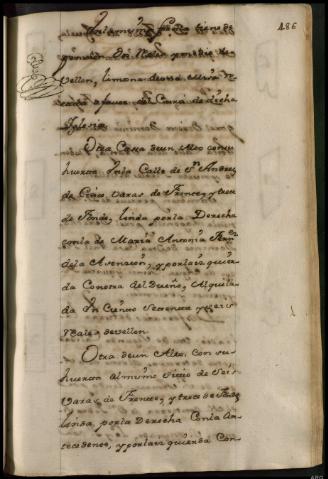 186
pension dos Reales
Vellon, limosna de una
a favor del Cura de dicha
Iglesia
Otra Casa de un Alto con su
huerta Inla Calle de Sn. Andres
de Cinco varas de Frente, y trece
de Fondo, linda porla Derecha
conla de Maria Antonia
dela Asencion, y porla Izquier
da Conotra del Dueño, Alquila
da In Ciento Sesenta y seis
Reales de vellon
Otra de un Alto Con su
huerta al mismo Sitio de Seis
Varas de Frente, y trece de Fondo
linda porla Derecha Conla An
tecedente, y porla Izquierda Con